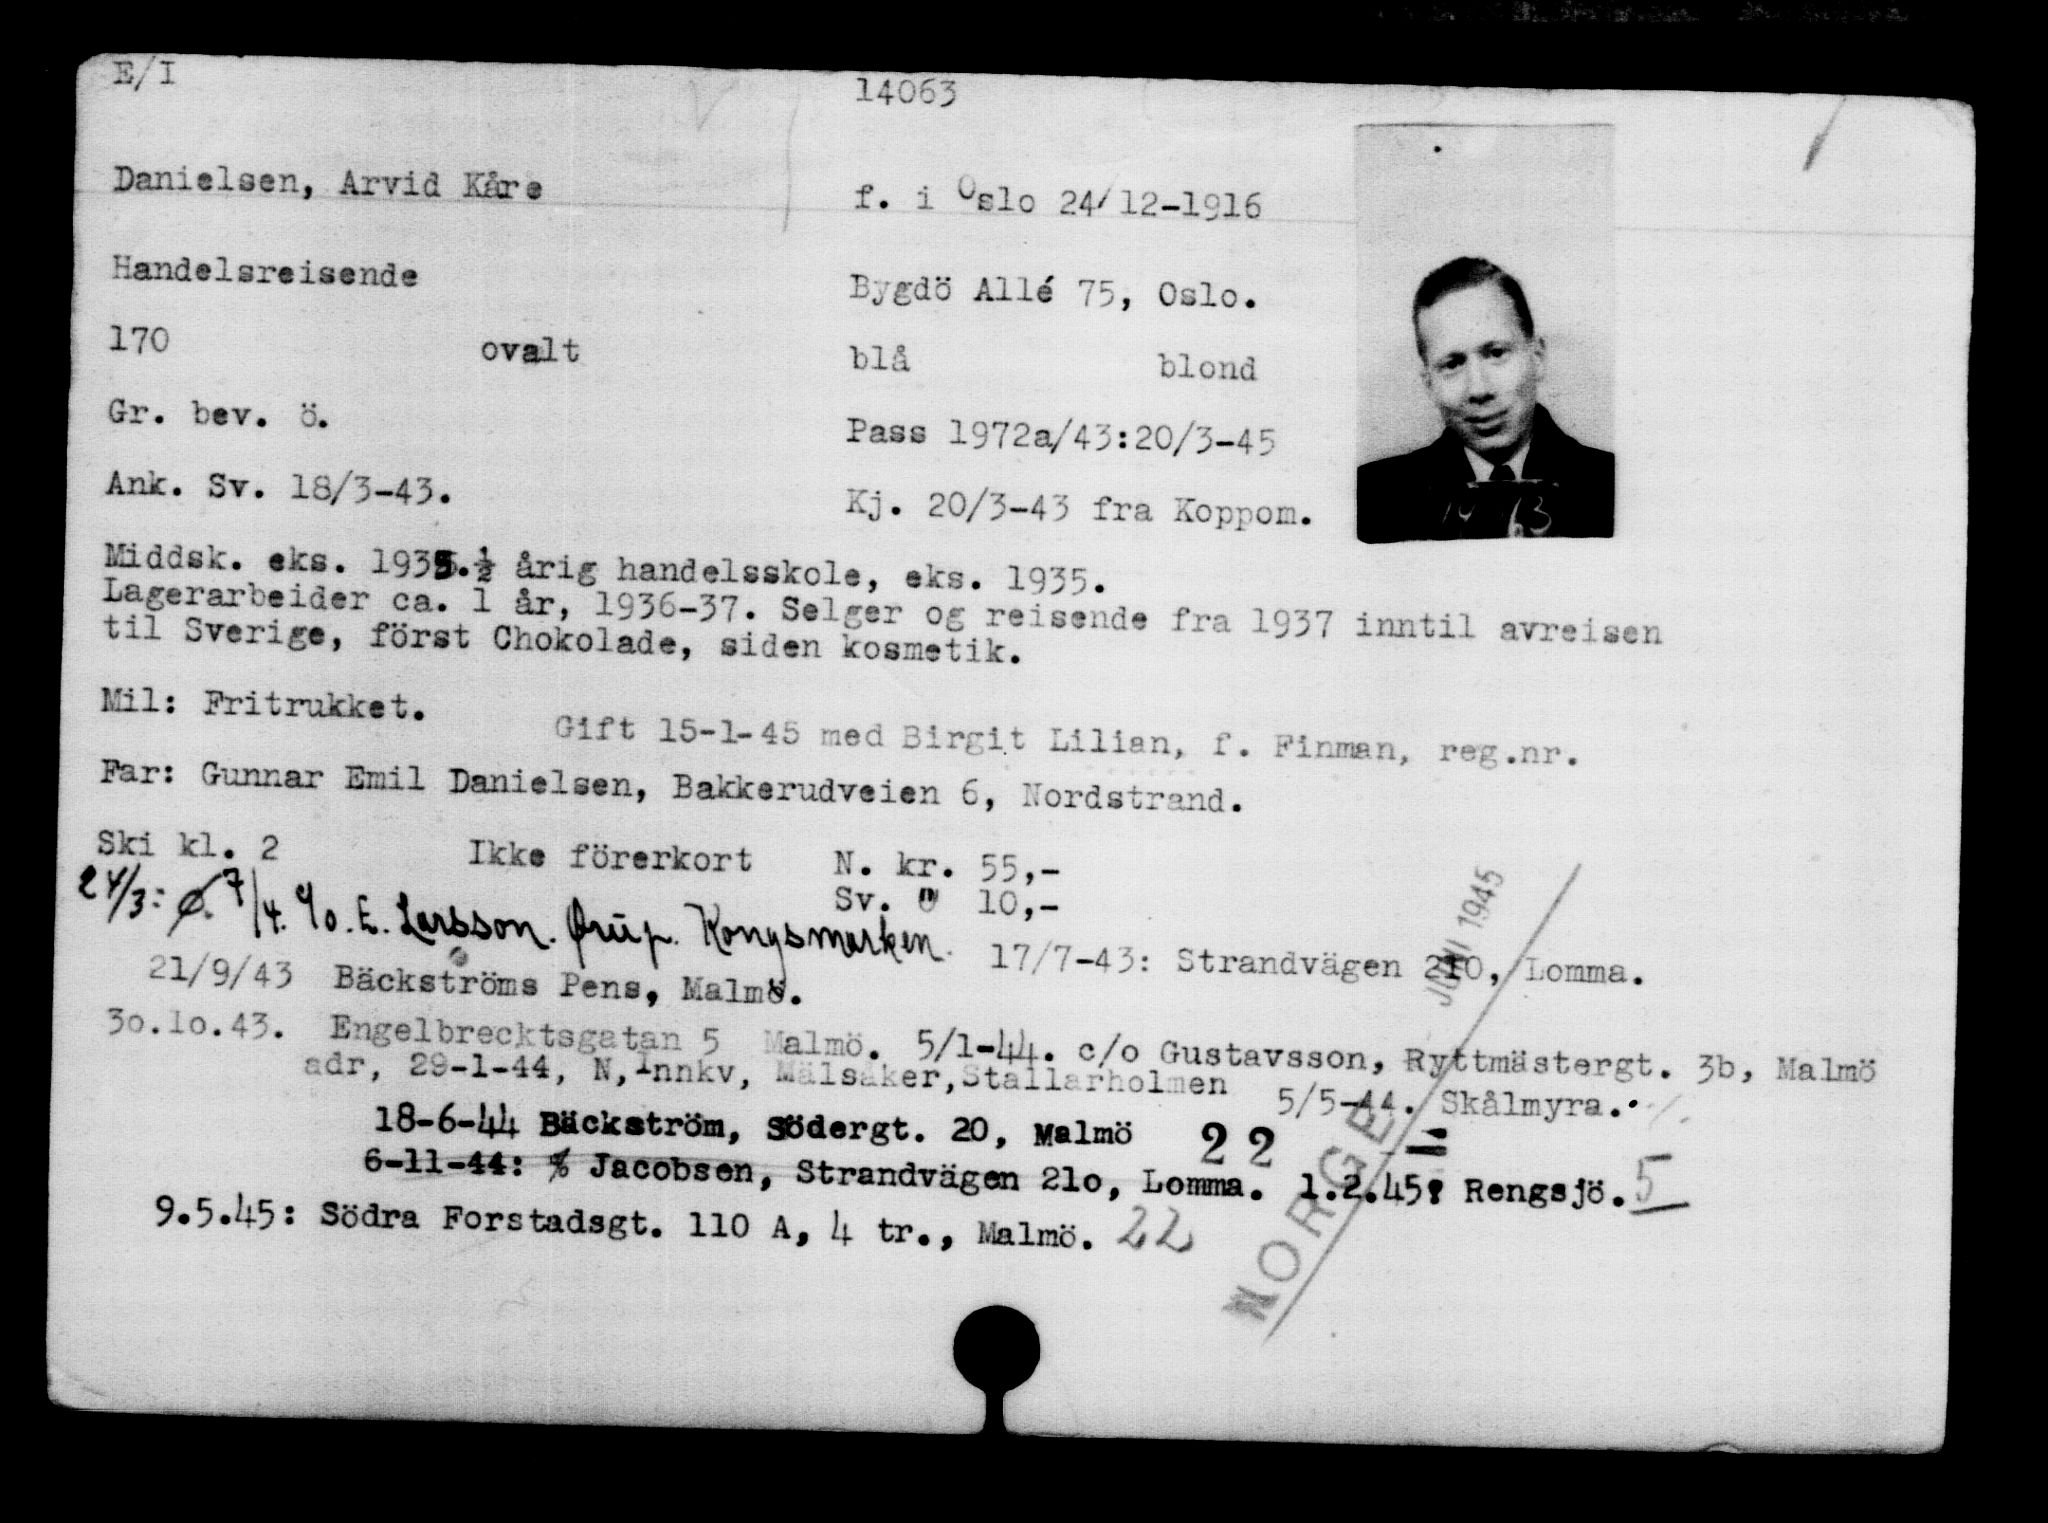 E/I 14063
Danielsen, Arvid Kåre f. i Oslo 24/12-1916
Handelsreisende Bygdö Allé 75, Oslo.
170 ovalt blå blond
Gr. bev. ö. Pass 1972a/43:20/3-45
Ank. Sv. 18/3-43. Kj. 20/3-43 fra Koppom.
Middsk. eks. 1935.½ årig handelsskole, eks. 1935.
Lagerarbeider ca. 1 år, 1936-37. Selger og reisende fra 1937 inntil avreisen
til Sverige, först Chokolade, siden kosmetik.
Mil: Fritrukket.
Gift 15-1-45 med Birgit Lilian, f. Finman, reg.nr.
Far: Gunnar Emil Danielsen, Bakkerudveien 6, Nordstrand.
Ski kl. 2 Ikke förerkort N. kr. 55,-
Sv. " 10,-
24/3: Ø. 7/4. c/o. E. Larsson. Ørup. Kongsmarken. 17/7-43: Strandvägen 210, Lomma.
21/9/43 Bäckströms Pens, Malmö.
3o.1o.43. Engelbrecktsgatan 5 Malmö. 5/1-44. c/o Gustavsson, Ryttmästergt. 3b, Malmö
adr, 29-1-44, N, Innkv, Mälsåker, Stallarholmen 5/5-44. Skålmyra.
18-6-44 Bäckström, Södergt. 20, Malmö 22
6-11-44: % Jacobsen, Strandvägen 21o, Lomma. 1.2.45: Rengsjö. 5
9.5.45: Södra Forstadsgt. 110 A, 4 tr., Malmö. 22
NORGE JUNI 1945